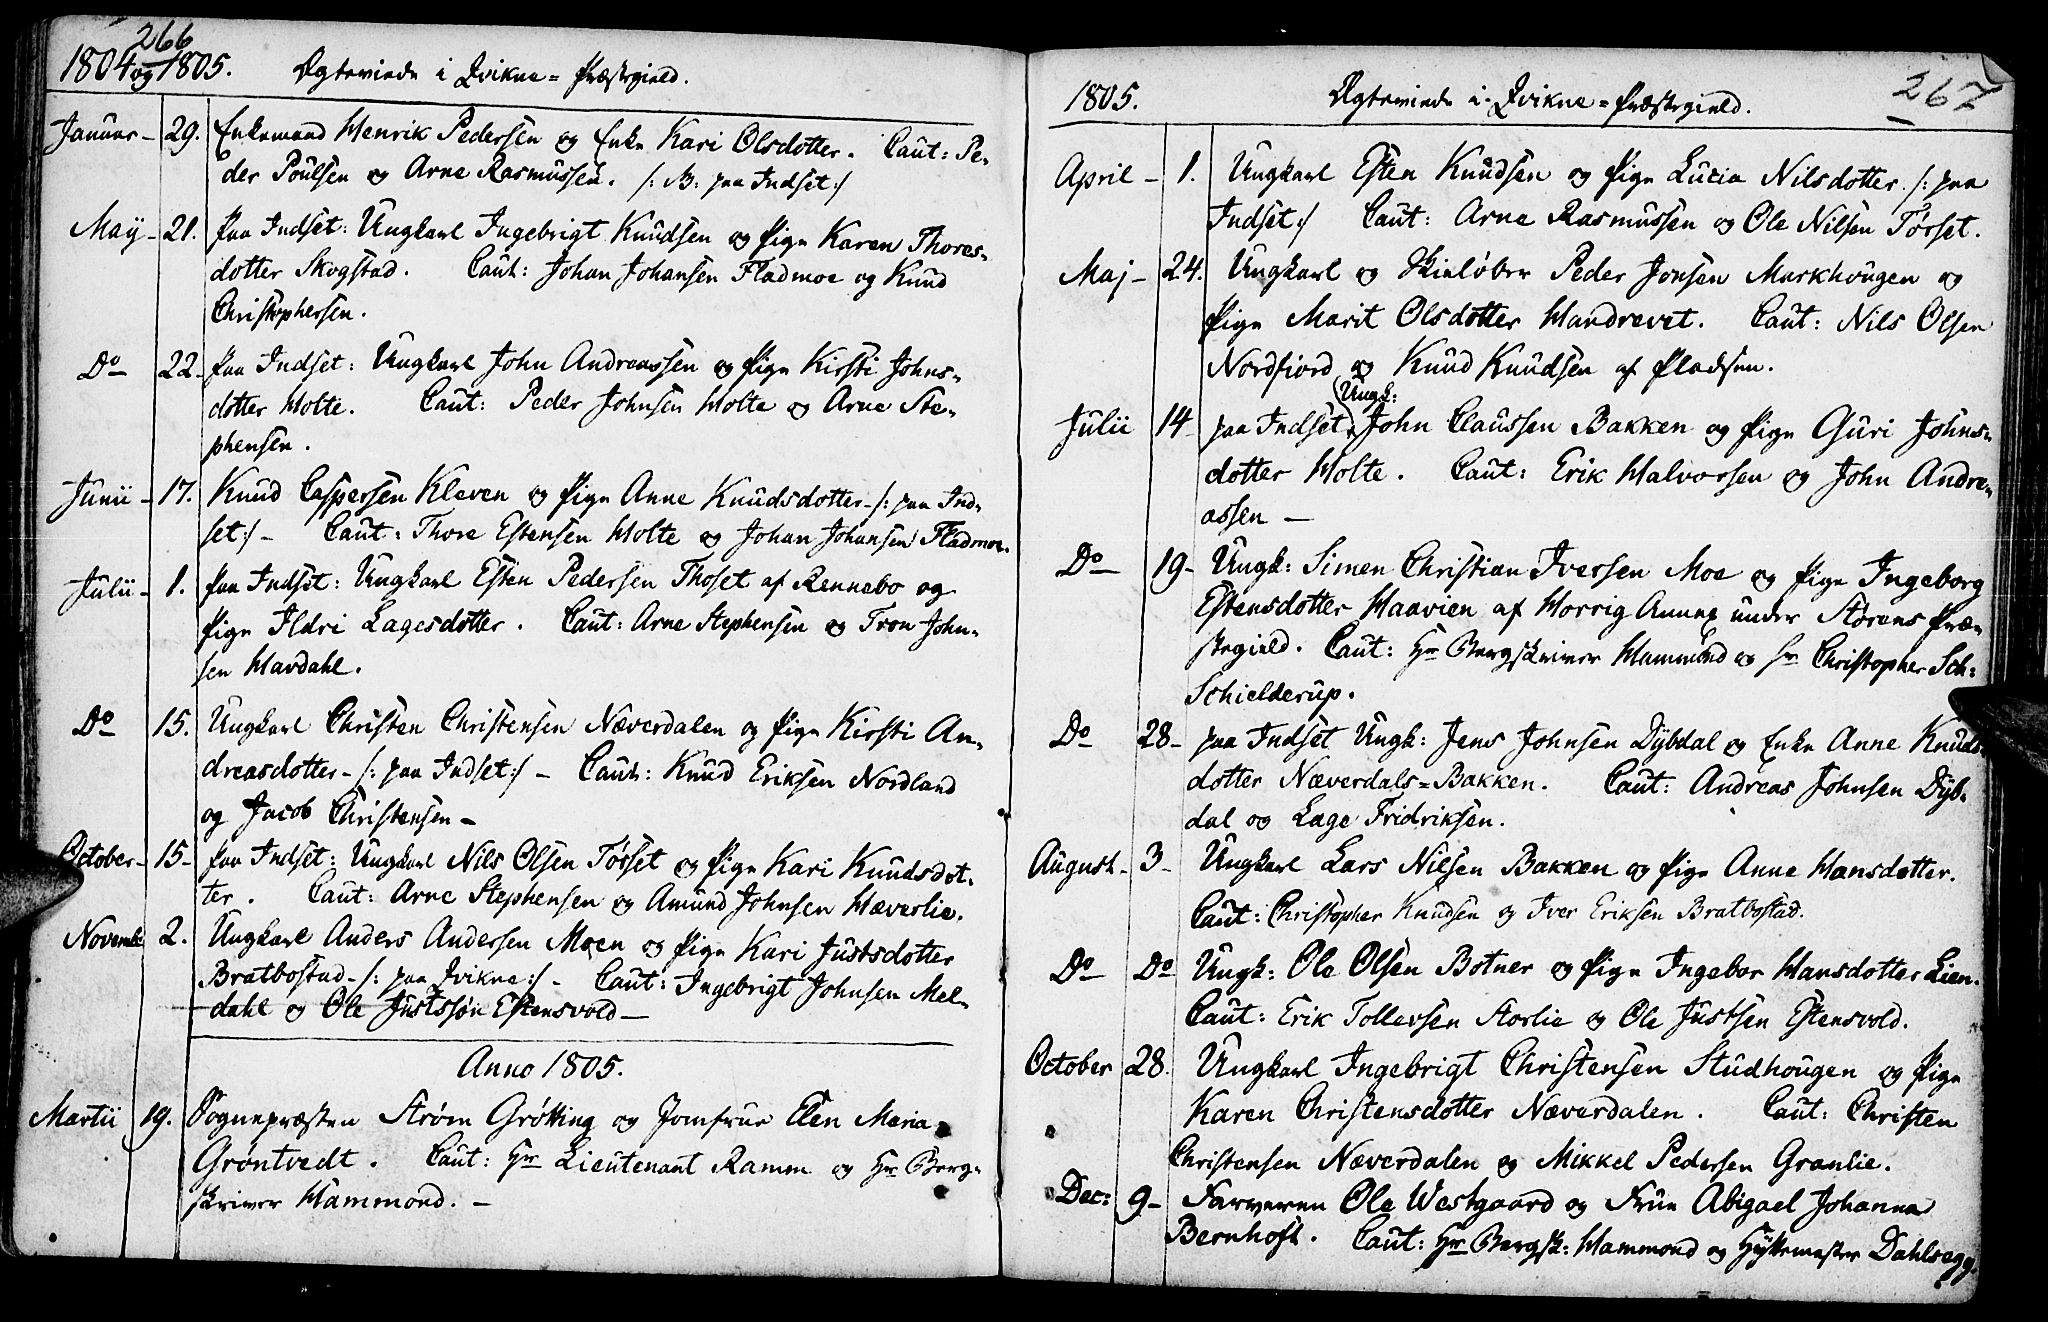 266
1804 og 1805. Ægteviede i Qvikne= Præstegield.
Januar - 29. Enkemand Henrik Pedersen og Enke Kari Olsdotter. Caut: Pe-
der Poulsen og Arne Rasmussen. /: B: paa Indset :/
May - 21. Paa Indset: Ungkarl Ingebrigt Knudsen og Pige Karen Thores-
dotter Skogstad. Caut: Johan Johansen Fladmoe og Knud
Christophersen.
Do 22 - Paa Indset: Ungkarl John Andreassen og Pige Kirsti Johns-
dotter Holte. Caut: Peder Johnsen Holte og Arne Ste-
phensen.
Junii - 17. Knud Caspersen Kleven og Pige Anne Knudsdotter - /: paa Ind-
set :/ - Caut: Thore Estensen Holte og Johan Johansen Fladmoe.
Julii - 1. Paa Indset: Ungkarl Esten Pedersen Thoset af Rennebo og
Pige Ildri Lagesdotter. Caut: Arne Stephensen og Tron John-
sen Havdahl.
Do 15. Ungkarl Christen Christensen Næverdalen og Pige Kirsti An-
dreasdotter - /: paa Indset :/ - Caut: Knud Eriksen Nordland
og Jacob Christensen -
October - 15 - Paa Indset: Ungkarl Nils Olsen Tørset og Pige Kari Knudsdot-
ter. Caut: Arne Stephensen og Amund Johnsen Hæverlie.
Novembr 2. Ungkarl Anders Andersen Moen og Pige Kari Justsdotter
Bratbostad - /: paa Qvikne :/ - Caut: Ingebrigt Johnsen Mel-
dahl og Ole Justssøn Estensvold -
Anno 1805.
Martii 19. Sognepræsten Strøm Grøtting og Jomfrue Elen Maria
Grøntvedt. Caut: Hr Lieutenant Ramm og Hr Berg-
skriver Hammond. -
267
1805. Ægteviede i Qvikne= Præstegield.
April - 1. Ungkarl Esten Knudsen og Pige Lucia Nilsdotter /: paa
Indset :/ Caut: Arne Rasmussen og Ole Nilsen Tørset.
Maj - 24. Ungkarl og Skieløber Peder Jonsen Markhougen og
Pige Marit Olsdotter Handrevet. Caut: Nils Olsen
Nordfiord og Knud Knudsen af Pladsen.
Ungk:
Julii 14 - paa Indset, John Claussen Bakken og Pige Guri Johns-
dotter Holte. Caut: Erik Halvorsen og John Andre-
assen -
Do 19 - Ungk: Simen Christian Iversen Moe og Pige Ingeborg
Estensdotter Haavien af Horrig Annex under Størens Præ-
stegield. Caut: Hr Bergskriver Hammond og Hr Christopher Sch:
Schielderup.
Do 28 - paa Indset Ungk: Jens Johnsen Dybdal og Enke Anne Knuds
dotter Næverdals=Bakken. Caut: Andreas Johnsen Dyb-
dal og Lage Fridriksen.
August - 3 - Ungkarl Lars Nilsen Bakken og Pige Anne Hansdotter.
Caut: Christopher Knudsen og Iver Eriksen Bratbostad.
Do Do Ungk: Ole Olsen Botner og Pige Ingebor Hansdotter Lien.
Caut: Erik Tollevsen Storlie og Ole Justsen Estensvold.
October 28. Ungkarl Ingebrigt Christensen Studhougen og Pige
Karen Christensdotter Næverdalen. Caut: Christen
Christensen Næverdalen og Mikkel Pedersen Granlie.
Dec: 9 - Farveren Ole Westgaard og Frue Abigael Johanna
Bernhoft. Caut: Hr Bergsk: Hammond og Hyttemester Dahlsegg.